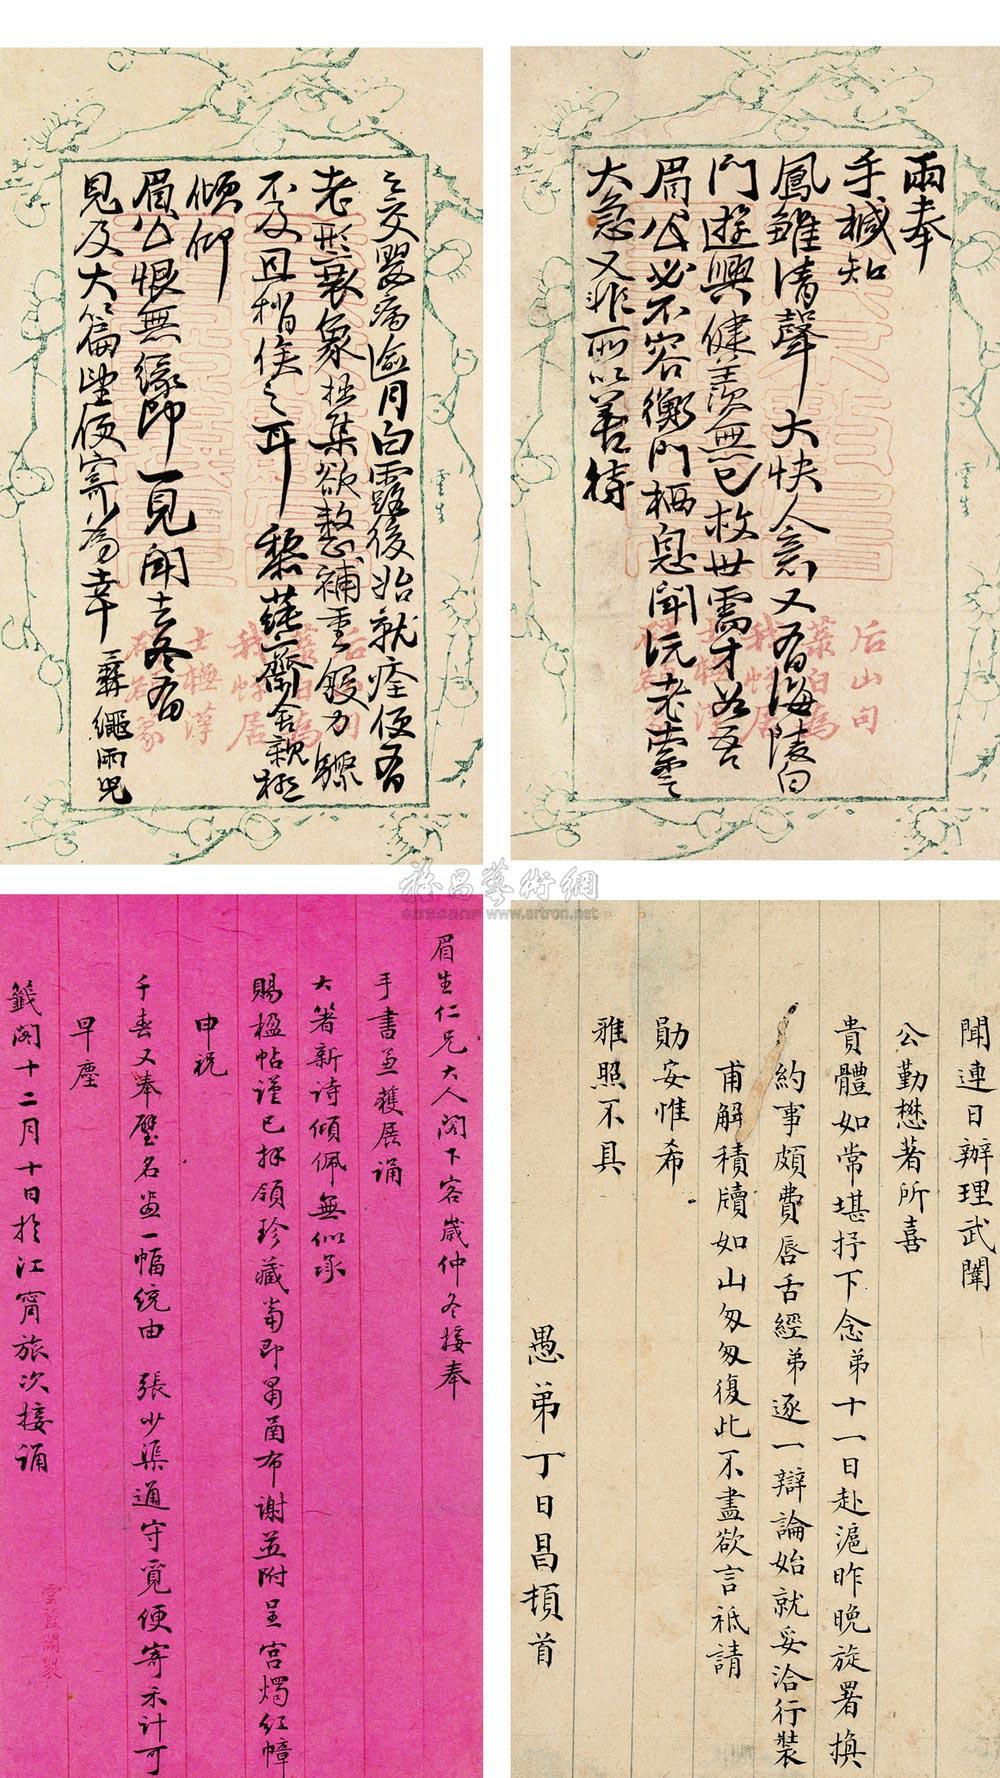 兩奉
手椷知
鳳雛清聲大快人意又有海陵白
門遊興健羨無已救世需才如吾
眉公必不容衡門栖息聞沅老索之
大急又非所以善待
之交嬰病逾月白露後始就痊便有
老形裝象拙集欲整補重假力驟
不及且稍俟之耳黎蒓齋舍親極
傾仰
眉公恨無緣即一見聞去冬有
見及大篇望便寄為幸彞繩兩兄
后山句
叢白為
我幛居
士極淳
雲生
聞連日辦理武闈
公勤懋著所喜
貴體如常堪抒下念弟十一日赴滬昨晚旋署換
約事頗費唇舌經弟逐一辯論始就妥洽行裝
甫解積牘如山匆匆復此不盡欲言祗請
勛安惟希
雅照不具
愚弟丁日昌頓首
眉生仁兄大人閣下客歲仲冬接奉
手書並獲展誦
大箸新詩傾佩無似承
賜楹帖謹已拜領珍藏當即肅函布謝並附呈宮燭紅幛
申祝
千春又奉壁名畫一幅統由張少渠通守覓便寄禾計可
早塵
籤閣十二月十日於江甯旅次接誦
雲藍閣製
雅昌藝術網
www.artron.net